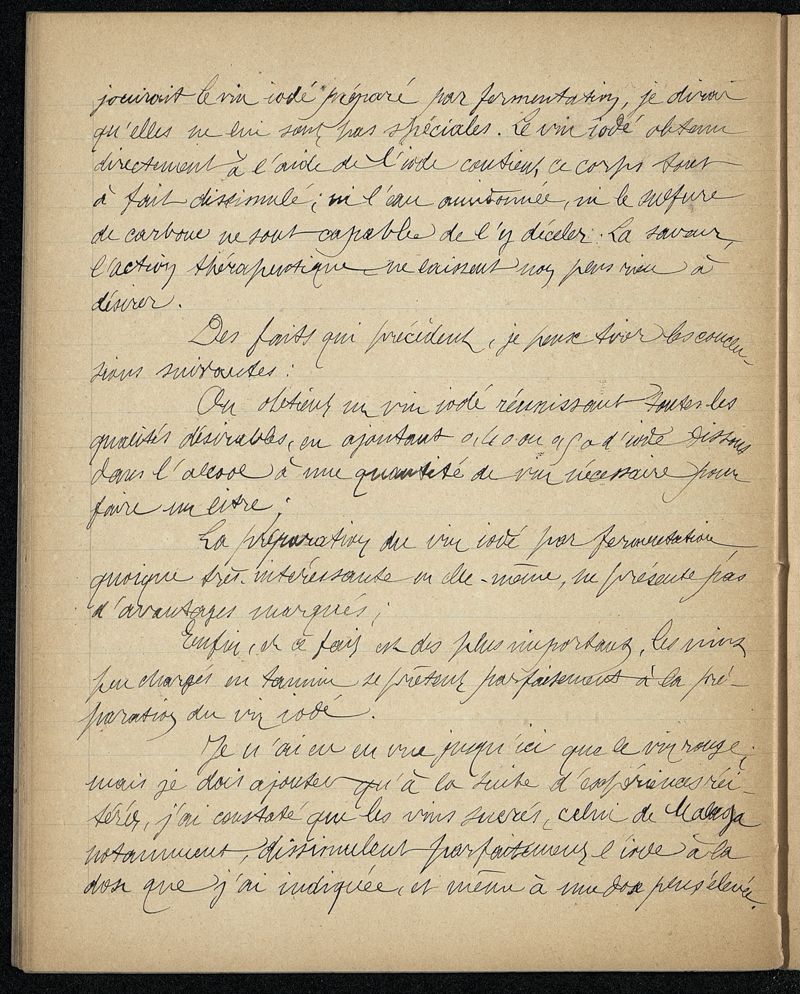 jouirait le vin iodé préparé par fermentation, je dirai
qu'elles ne lui sont pas spéciales. Le vin iodé obtenu
directement à l'aide de l'iode contient ce corps tout
à fait dissimulé ; ni l'eau amidonnée, ni le sulfure
de carbone ne sont capables de l'y déceler. La saveur,
l'action thérapeutique ne laissent non plus rien à
désirer.
Des faits qui précèdent, je peux tirer les conclu-
sions suivantes :
On obtient un vin iodé réunissant toutes les
qualités désirables, en ajoutant 0,40 ou 0,50 d'iode dissous
dans l'alcool à une quantité de vin nécessaire pour
faire un litre ;
La préparation du vin iodé par fermentation
quoique très-intéressante en elle-même, ne présente pas
d'avantages marqués ;
Enfin, et ce fait est des plus important, les vins
peu chargés en tannin se prêtent parfaitement à la pré-
paration du vin iodé.
Je n'ai eu en vue jusqu'ici que le vin rouge ;
mais je dois ajouter qu'à la suite d'expériences réi-
térées, j'ai constaté que les vins sucrés, celui de Malaga
notamment, dissimulent parfaitement l'iode à la
dose que j'ai indiquée, et même à une dose plus élevée.